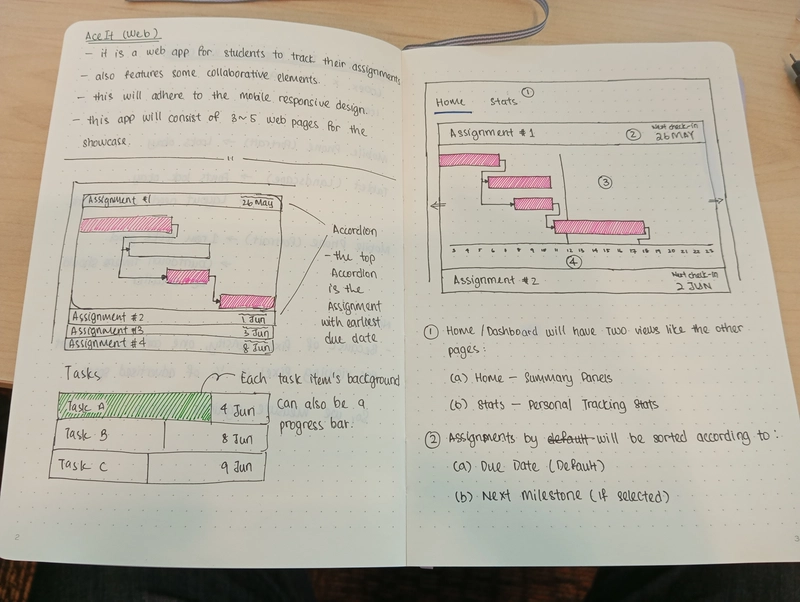 AceIt (Web)
- it is a web app for students to track their assignments
- also features some collaborative elements.
- this will adhere to the mobile responsive design.
- this app will consist of 3~5 web pages for the
showcase.
Assignment #1 26 May
Assignment #2 1 Jun
Assignment #3 3 Jun
Assignment #4 8 Jun
Accordion
- the top
Accordion
is the
Assignment
with earliest
due date
Tasks
Task A 4 Jun
Task B 8 Jun
Task C 9 Jun
Each task item's background
can also be a
progress bar.
2
Home Stats ①
Assignment #1 ② Next check-in
26 MAY
③
3 4 5 6 7 8 9 10 11 12 13 14 15 16 17 18 19 20 21 22 23
④
Assignment #2 Next check-in
2 JUN
① Home / Dashboard will have two views like the other
pages:
(a) Home – Summary Panels
(b) Stats – Personal Tracking Stats
② Assignments by default will be sorted according to:
(a) Due Date (Default)
(b) Next milestone (if selected)
3